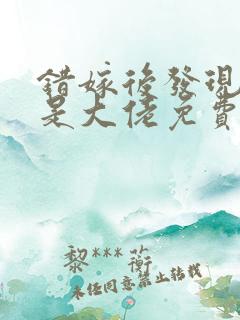 錯嫁後發現
是大佬免費
黎***蘅
未經同意禁止轉載